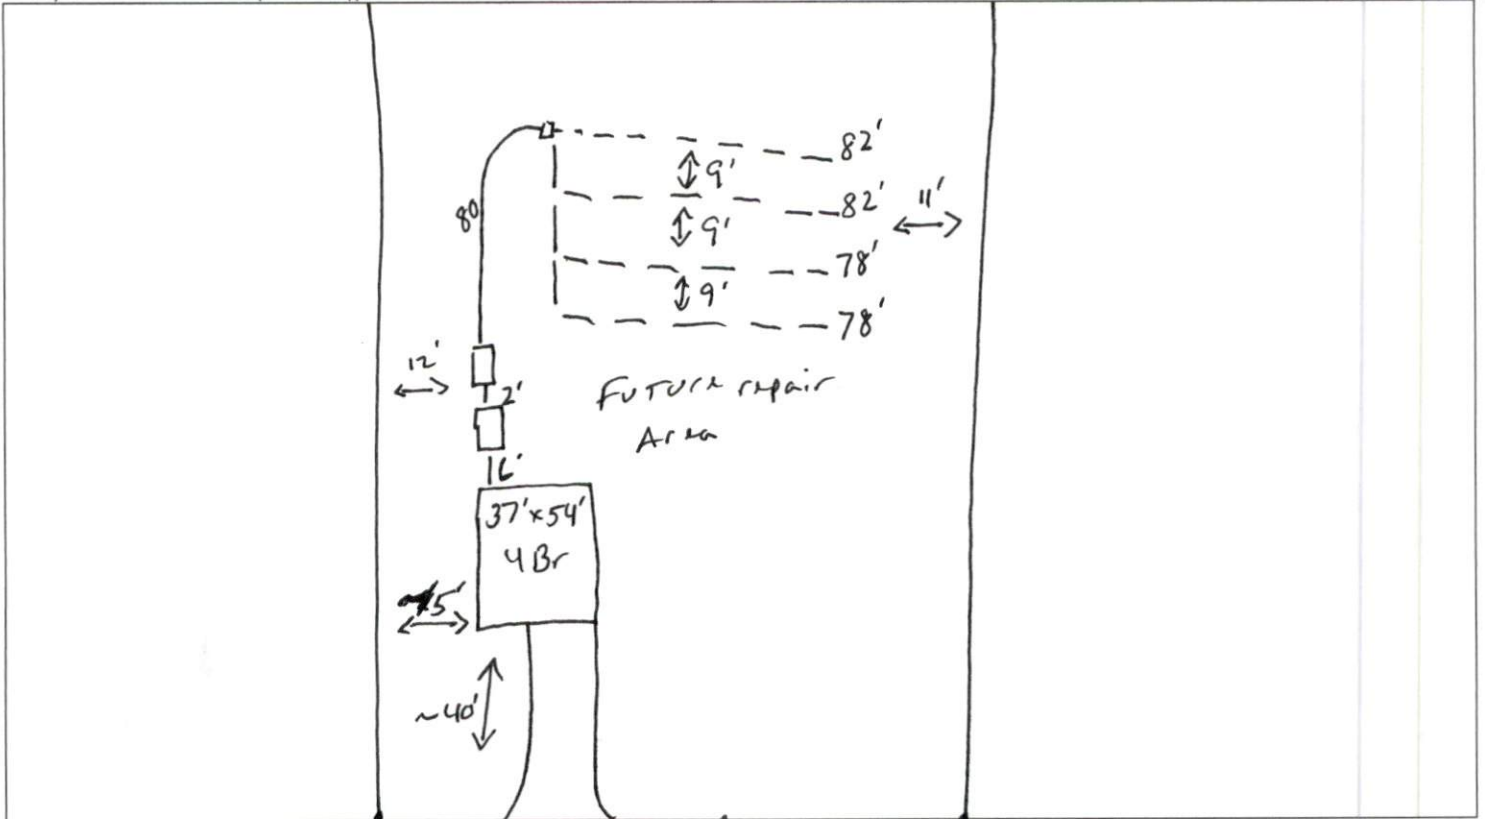 82'
9'
82'
11'
80
9'
78'
9'
78'
12'
2'
Future repair
Area
16'
37'x54'
4 Br
5'
~40'